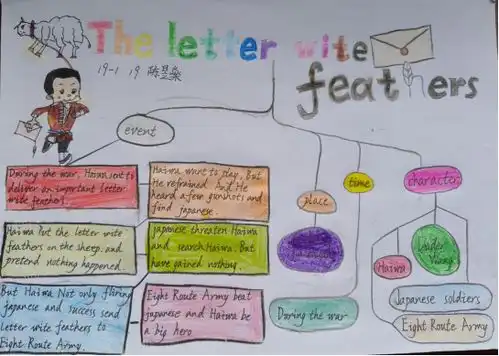 The letter wite
feathers
19-1 19 陈昱燊
event
During the war, Haiwa sent to
deliver an important letter
wite feathers.
Haiwa want to play, But
He refrained. And He
heard a few gunshots and
find japanese.
Haiwa Put the letter wite
feathers on the sheep. and
pretend nothing happened.
japanese threaten Haiwa
and search Haiwa. But
have gained nothing.
But Haiwa Not only fliring
japanese and success send
Letter wite feathers to
Eight Route Army.
Eight Route Army beat
japanese and Haiwa be
a big hero
place
time
During the war
character
Haiwa
Leader
Japanese soldiers
Eight Route Army